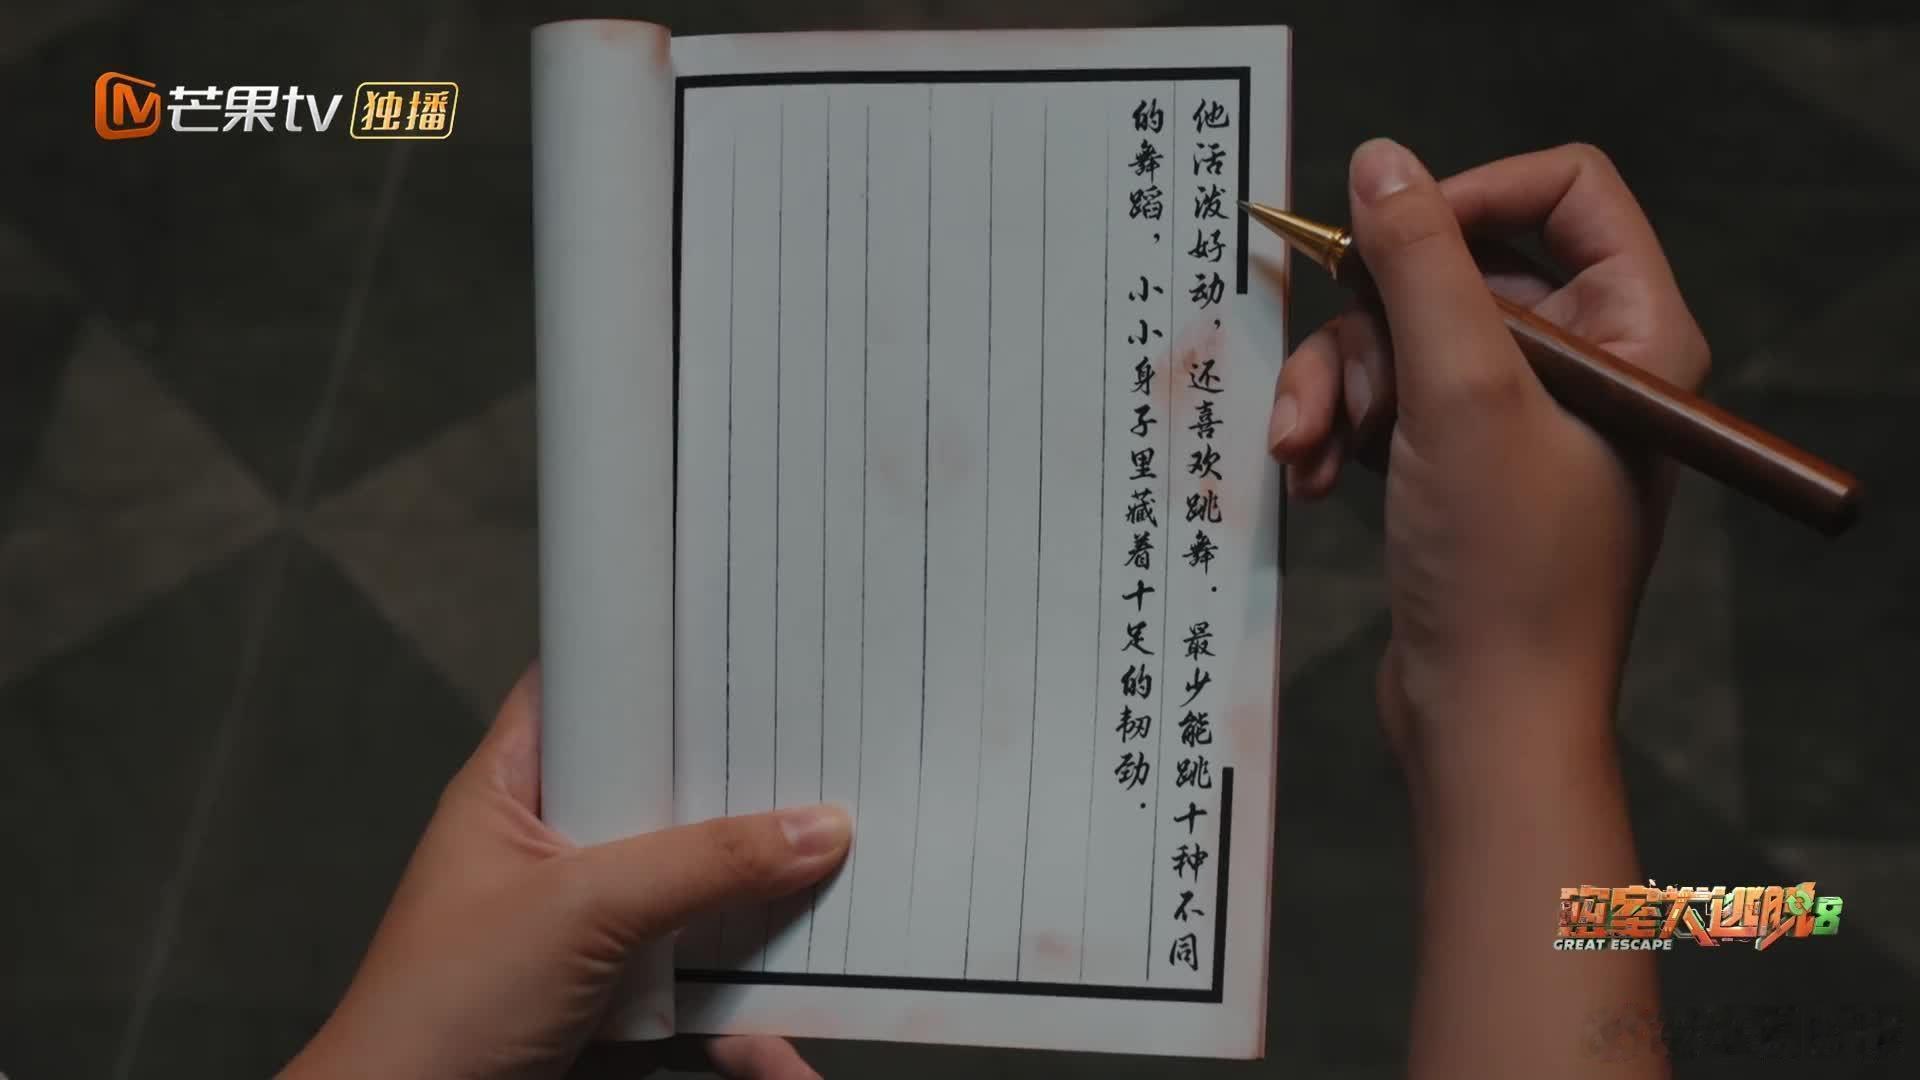 芒果tv 独播
他活泼好动，还喜欢跳舞．最少能跳十种不同
的舞蹈，小小身子里藏着十足的韧劲．
密室大逃脱8
GREAT ESCAPE